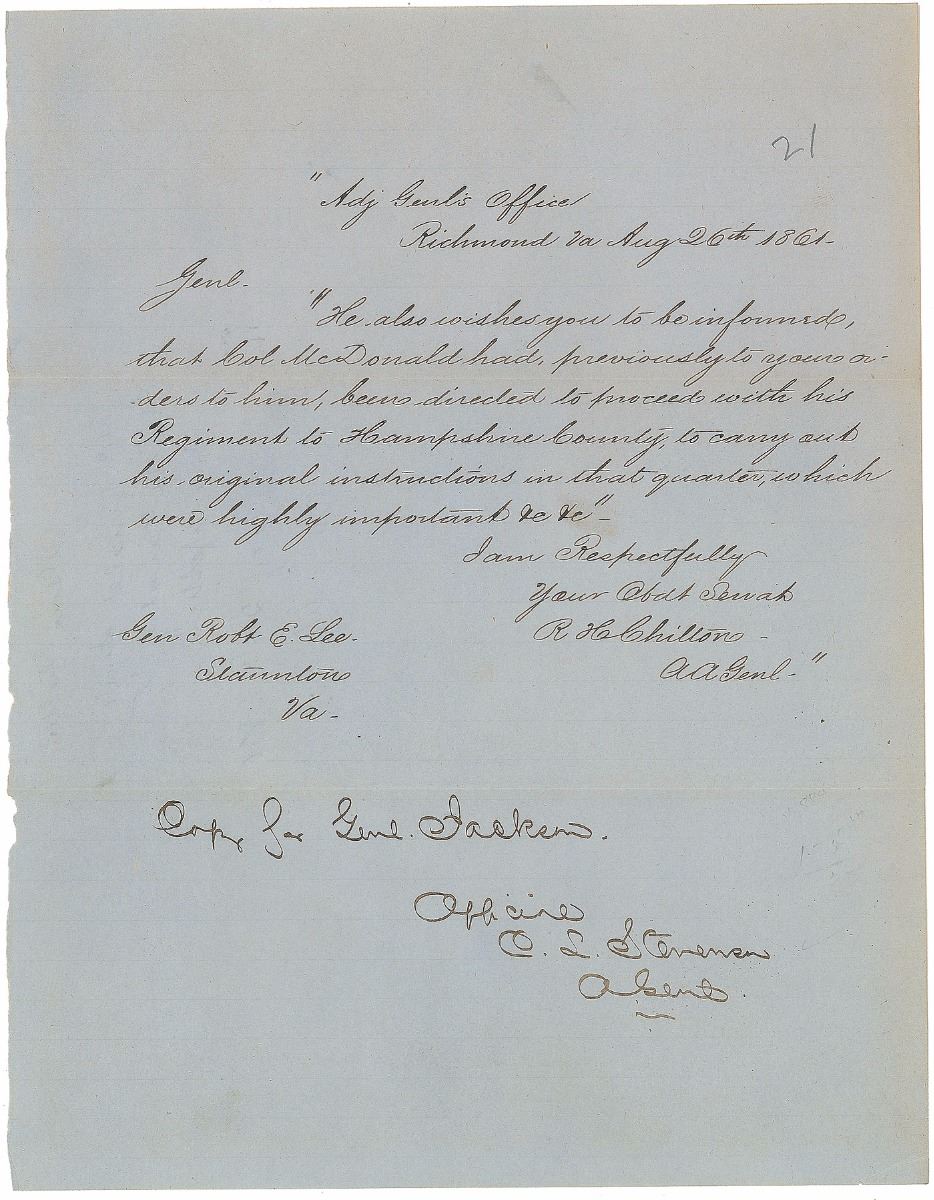 21
"Adj Genl's Office
Richmond Va Aug 26th 1861-
Genl.
"He also wishes you to be informed,
that Col McDonald had, previously to your or-
ders to him, been directed to proceed with his
Regiment to Hampshire County, to carry out
his original instructions in that quarter, which
were highly important &c &c"-
I am Respectfully
Your Obdt Servat
R H Chilton -
A A Genl - "
Gen Robt E. Lee.
Staunton
Va -
Copy for Genl. Jackson.
Official
C. L. Stevenson
A Genl.